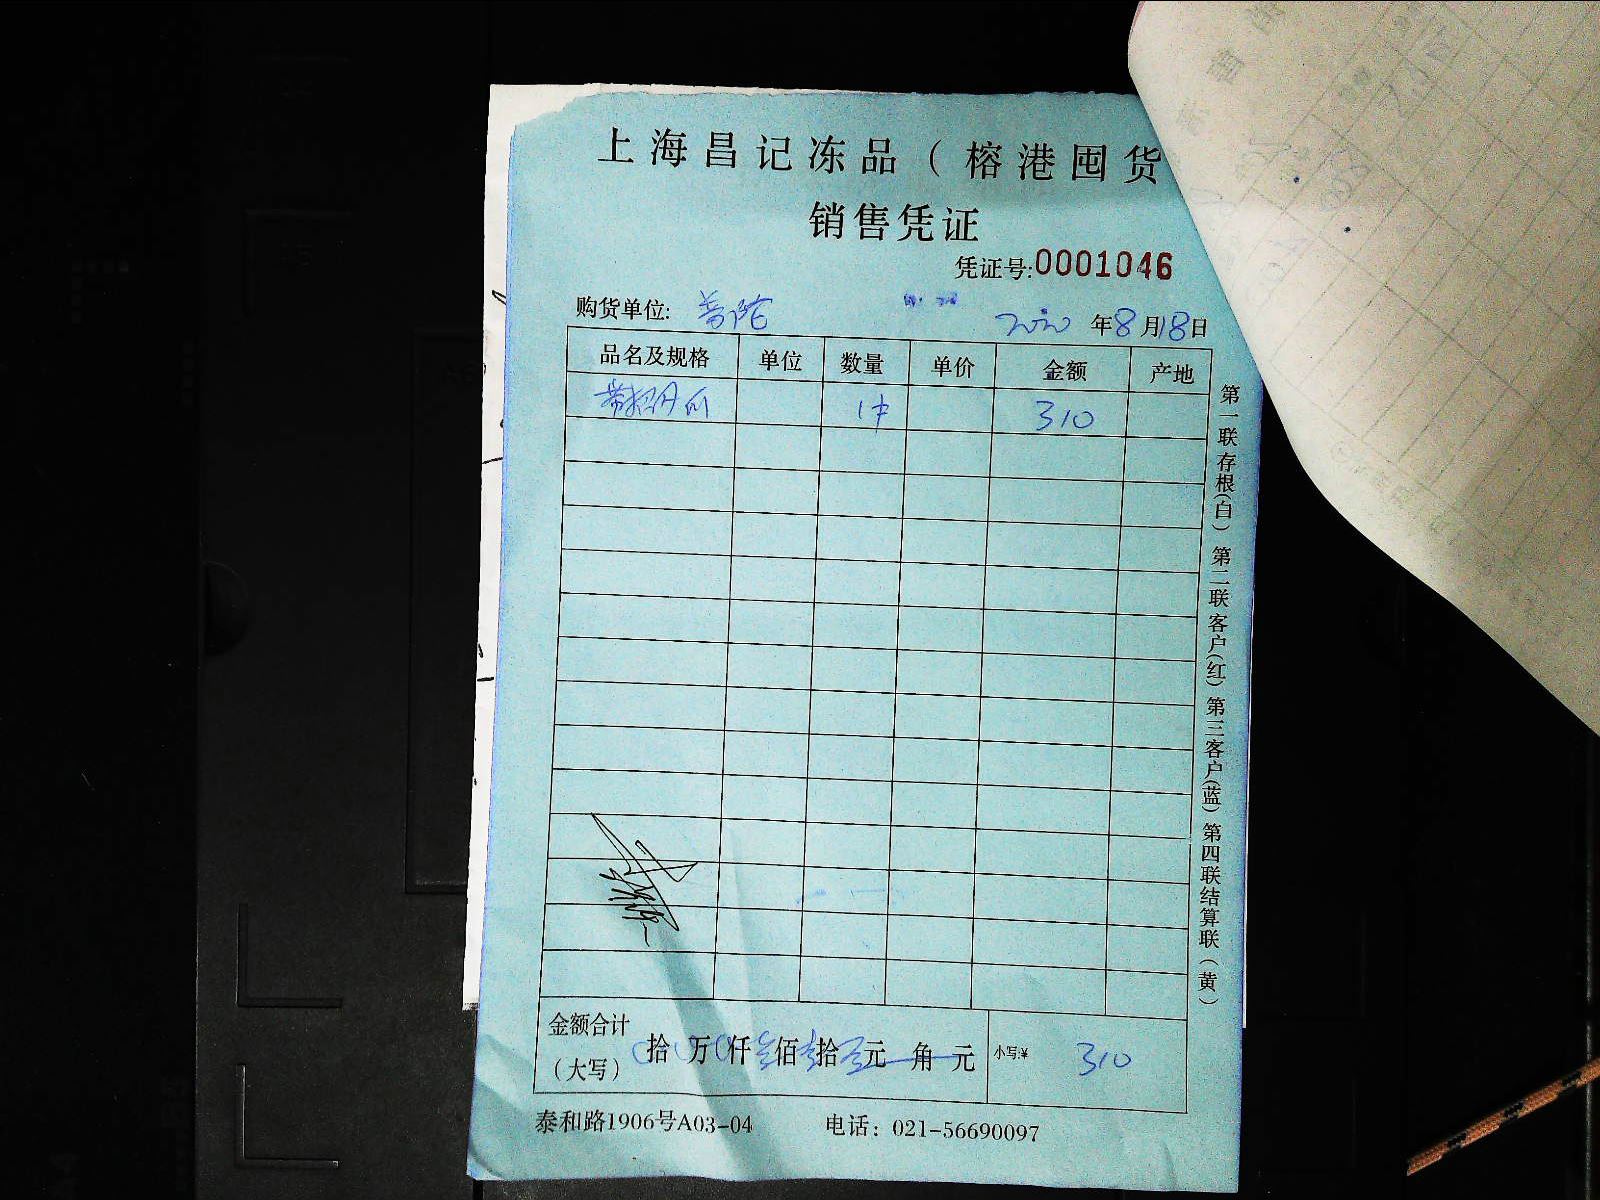 上海昌记冻品（榕港囤货
销售凭证
凭证号:0001046
购货单位: 2020年8月18日
品名及规格 单位 数量 单价 金额 产地
1件 310
金额合计（大写） 拾 万 仟 叁佰 壹拾 零元 角 元 小写:¥ 310
泰和路1906号A03-04 电话：021-56690097
第一联存根(白) 第二联客户(红) 第三客户(蓝) 第四联结算联(黄)